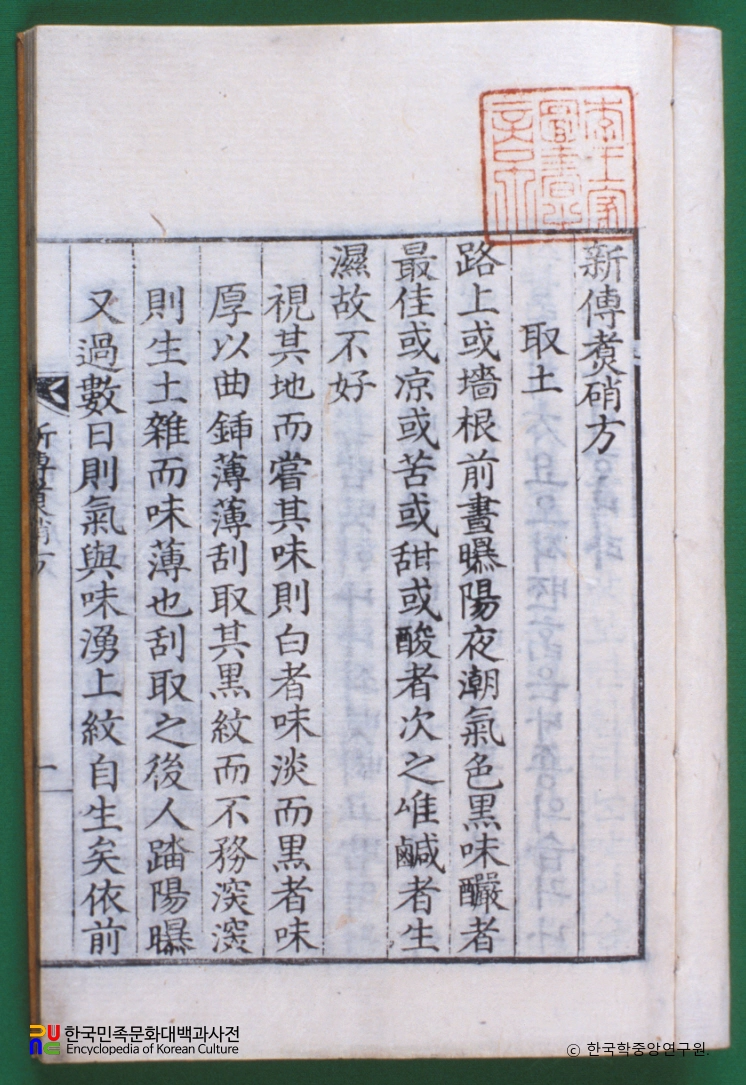 李王家
圖書之
新傳煑硝方
取土
路上或墻根前晝曝陽夜潮氣色黑味釅者
最佳或凉或苦或甜或酸者次之唯鹹者生
濕故不好
視其地而嘗其味則白者味淡而黑者味
厚以曲鍤薄薄刮取其黑紋而不務深深
則生土雜而味薄也刮取之後人踏陽曝
又過數日則氣與味湧上紋自生矣依前
新傳煑硝方
一
한국민족문화대백과사전
Encyclopedia of Korean Culture
ⓒ 한국학중앙연구원.